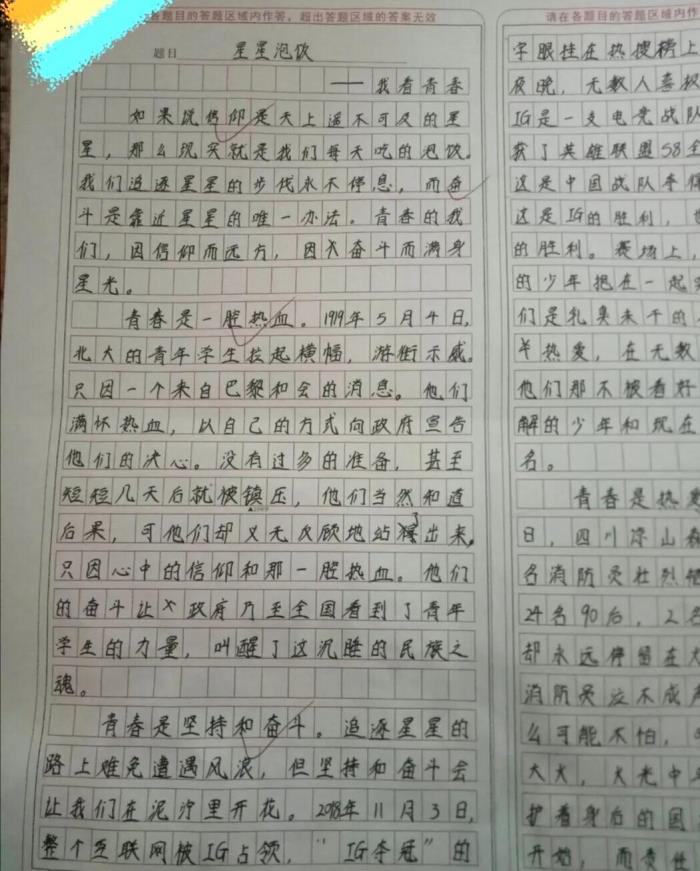 各题目的答题区域内作答，超出答题区域的答案无效
题目 星星泡饭
——我看青春
如果说信仰是天上遥不可及的星
星，那么现实就是我们每天吃的泡饭。
我们追逐星星的步伐永不停息，而奋
斗是靠近星星的唯一办法。青春的我
们，因信仰而远方，因奋斗而满身
星光。
青春是一腔热血。1919年5月4日，
北大的青年学生拉起横幅，游街示威。
只因一个来自巴黎和会的消息。他们
满怀热血，以自己的方式向政府宣告
他们的决心。没有过多的准备，甚至
短短几天后就被镇压，他们当然知道
后果，可他们却义无反顾地站了出来。
只因心中的信仰和那一腔热血。他们
的奋斗让政府乃至全国看到了青年
学生的力量，叫醒了这沉睡的民族之
魂。
青春是坚持和奋斗。追逐星星的
路上难免遭遇风浪，但坚持和奋斗会
让我们在泥泞里开花。2018年11月3日，
整个互联网被IG占领，“IG夺冠”的
请在各题目的答题区域内作
字眼挂在热搜榜上
夜晚，无数人喜极
IG是一支电竞战队
获了英雄联盟S8全
这是中国战队夺得
这是IG的胜利，也
的胜利。赛场上，
的少年抱在一起
们是乳臭未干的
年热爱，在无数
他们那不被看好
解的少年和现在
名。
青春是热爱
日，四川凉山森
名消防员壮烈牺
24名90后，2名
却永远停留在大
消防员泣不成声
么可能不怕，
大火，火光中
护着身后的国
开始，而责任